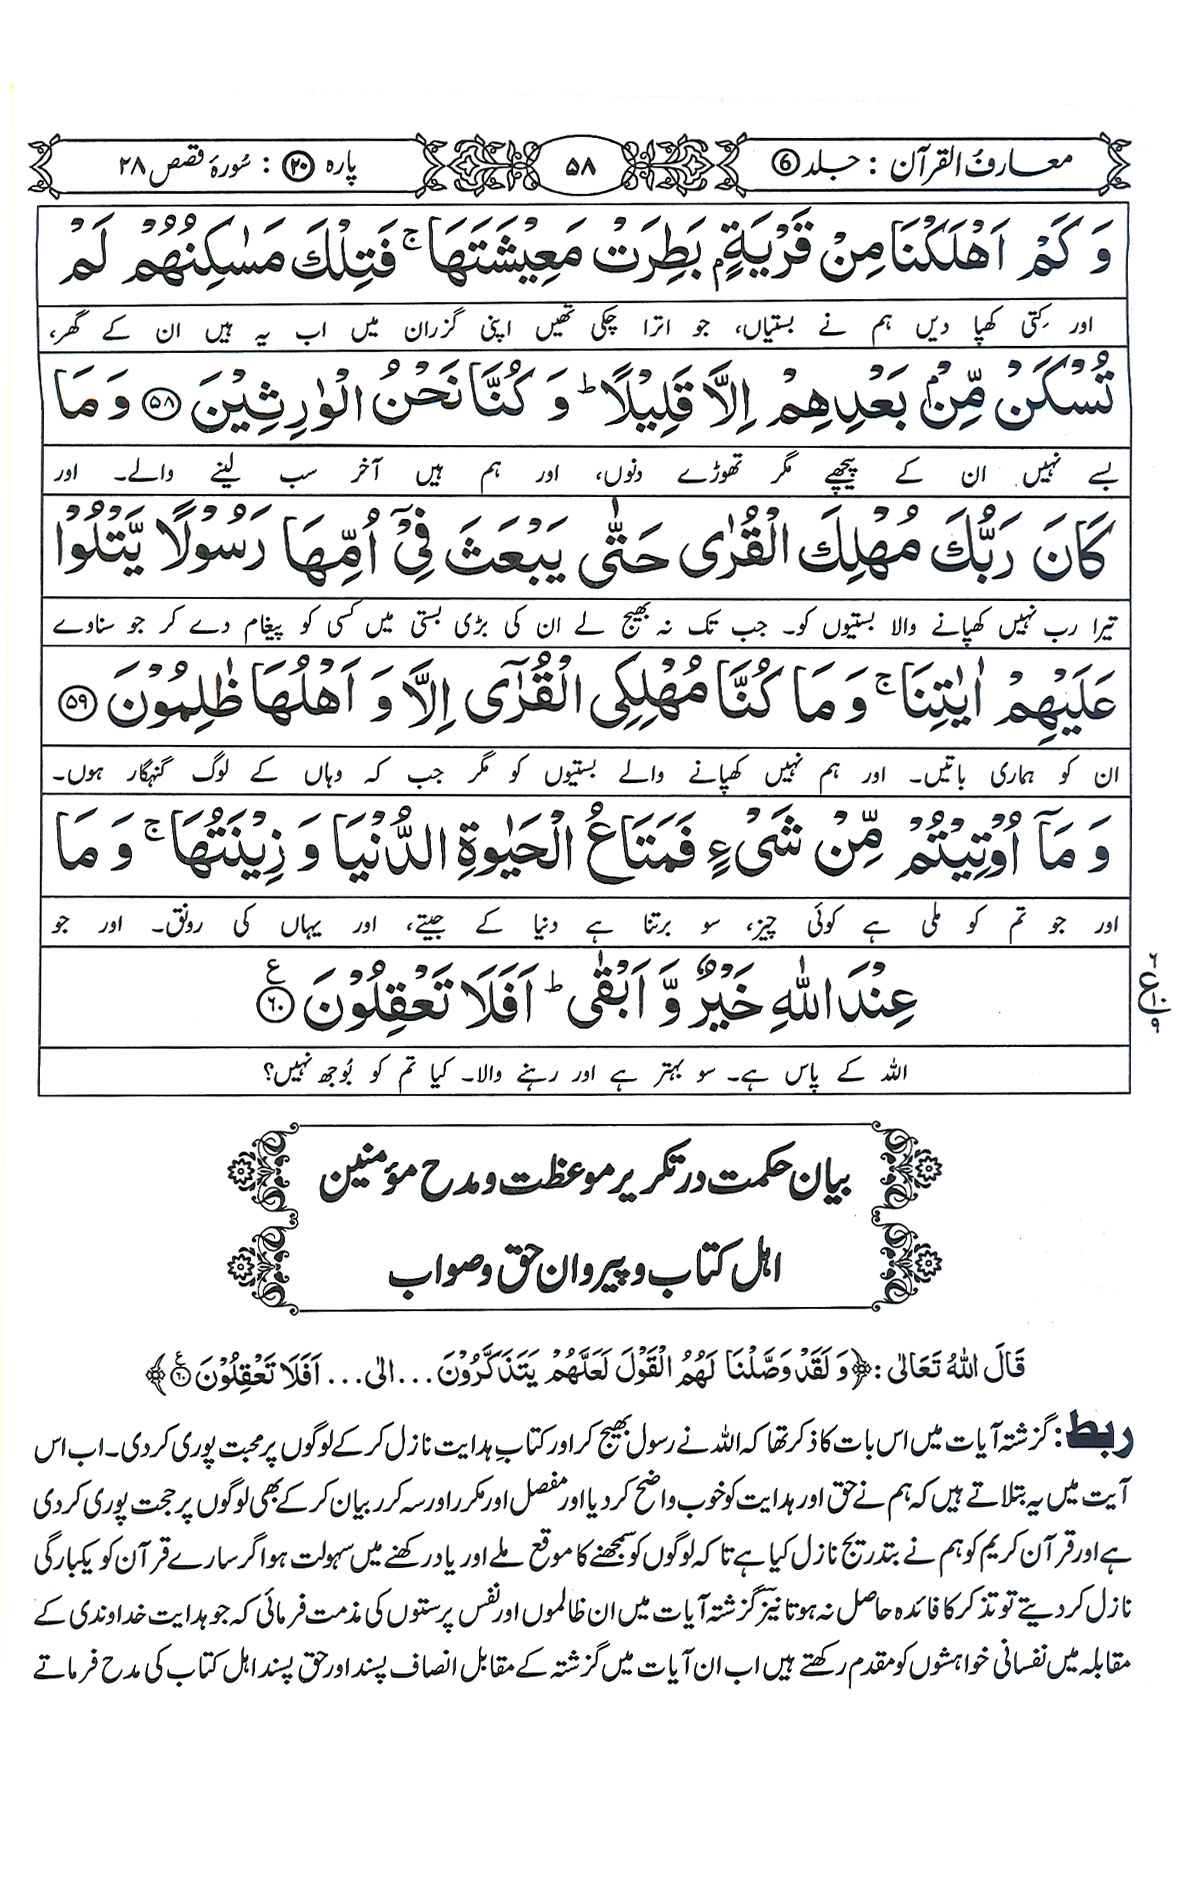 معارف القرآن : جلد 6
۵۸
پارہ ۲۰ : سُورۂ قصص ۲۸
وَ كَمْ اَهْلَكْنَا مِنْ قَرْيَةٍۭ بَطِرَتْ مَعِيْشَتَهَا ۚ فَتِلْكَ مَسٰكِنُهُمْ لَمْ
اور کتنی کھپا دیں ہم نے بستیاں، جو اترا چکی تھیں اپنی گزران میں اب یہ ہیں ان کے گھر،
تُسْكَنْ مِّنْۢ بَعْدِهِمْ اِلَّا قَلِيْلًا ؕ وَ كُنَّا نَحْنُ الْوٰرِثِيْنَ ۵۸ وَ مَا
بسے نہیں ان کے پیچھے مگر تھوڑے دنوں، اور ہم ہیں آخر سب لینے والے۔ اور
كَانَ رَبُّكَ مُهْلِكَ الْقُرٰى حَتّٰى يَبْعَثَ فِيْۤ اُمِّهَا رَسُوْلًا يَّتْلُوْا
تیرا رب نہیں کھپانے والا بستیوں کو۔ جب تک نہ بھیج لے ان کی بڑی بستی میں کسی کو پیغام دے کر جو سناوے
عَلَيْهِمْ اٰيٰتِنَا ۚ وَ مَا كُنَّا مُهْلِكِي الْقُرٰۤى اِلَّا وَ اَهْلُهَا ظٰلِمُوْنَ ۵۹
ان کو ہماری باتیں۔ اور ہم نہیں کھپانے والے بستیوں کو مگر جب کہ وہاں کے لوگ گنہگار ہوں۔
وَ مَاۤ اُوْتِيْتُمْ مِّنْ شَيْءٍ فَمَتَاعُ الْحَيٰوةِ الدُّنْيَا وَ زِيْنَتُهَا ۚ وَ مَا
اور جو تم کو ملی ہے کوئی چیز، سو برتنا ہے دنیا کے جیتے، اور یہاں کی رونق۔ اور جو
عِنْدَ اللّٰهِ خَيْرٌ وَّ اَبْقٰى ؕ اَفَلَا تَعْقِلُوْنَ ۶۰ ع
۶
ع ۱۰
۹
اللہ کے پاس ہے۔ سو بہتر ہے اور رہنے والا۔ کیا تم کو بُوجھ نہیں؟
بیان حکمت در تکریر موعظت و مدح مؤمنین
اہل کتاب و پیروان حق و صواب
قَالَ اللّٰهُ تَعَالٰى : ﴿وَ لَقَدْ وَصَّلْنَا لَهُمُ الْقَوْلَ لَعَلَّهُمْ يَتَذَكَّرُوْنَ ... الٰى ... اَفَلَا تَعْقِلُوْنَ ۶۰ ع﴾
ربط: گزشتہ آیات میں اس بات کا ذکر تھا کہ اللہ نے رسول بھیج کر اور کتاب ہدایت نازل کر کے لوگوں پر محبت پوری کر دی۔ اب اس
آیت میں یہ بتلاتے ہیں کہ ہم نے حق اور ہدایت کو خوب واضح کر دیا اور مفصل اور مکرر اور سہ کرر بیان کر کے بھی لوگوں پر حجت پوری کر دی
ہے اور قرآن کریم کو ہم نے بتدریج نازل کیا ہے تا کہ لوگوں کو سمجھنے کا موقع ملے اور یاد رکھنے میں سہولت ہو اگر سارے قرآن کو یکبارگی
نازل کر دیتے تو تذکر کا فائدہ حاصل نہ ہوتا نیز گزشتہ آیات میں ان ظالموں اور نفس پرستوں کی مذمت فرمائی کہ جو ہدایت خداوندی کے
مقابلہ میں نفسانی خواہشوں کو مقدم رکھتے ہیں اب ان آیات میں گزشتہ کے مقابل انصاف پسند اور حق پسند اہل کتاب کی مدح فرماتے